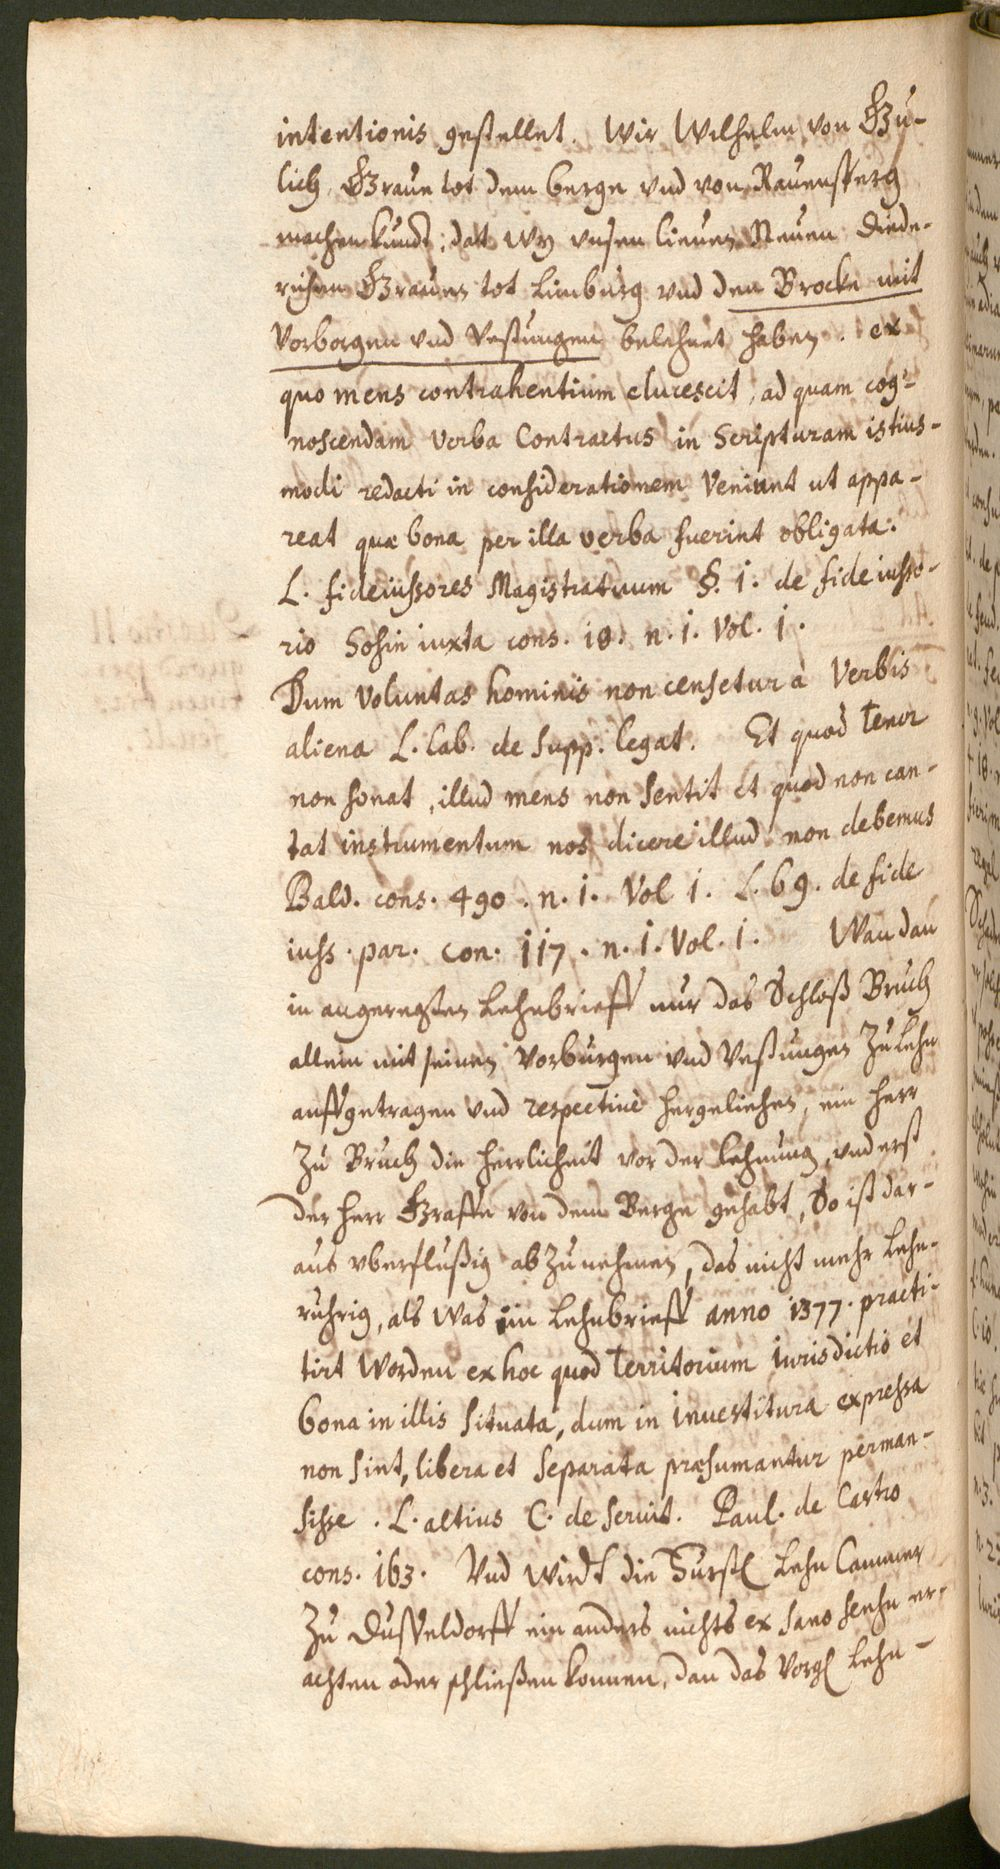 intentionis gestellet. Wir Wilhelm von Gu-
lich Graue tot dem berge vnd von Rauensperg
machen kundt, dat Wy vnsen lieuen Neuen Diede-
richen Grauen tot Limburg vnd den Brocke mit
Vorborgen vnd Vestungen belehnet haben. ex
quo mens contrahentium elucescit, ad quam cog-
noscendam verba Contractus in Scripturam istius-
modi redacti in considerationem Veniunt ut appa-
reat quæ bona per illa verba fuerint obligata.
L. fideiussores Magistratuum §. 1. de fideiusso-
rio Sosin iuxta cons. 18. n. 1. Vol. 1.
Dum voluntas hominis non censetur à Verbis
aliena L. Lab. de Supp. legat. Et quod Tenor
non sonat, illud mens non sentit et quod non can-
tat instrumentum nos dicere illud non debemus
Bald. cons. 490. n. 1. Vol 1. L. 69. de fide
iuss. par. con. 117. n. 1. Vol. 1. Wan dan
in angeregten Lehnbrieff nur das Schloß Bruch
allein mit seinen Vorburgen vnd Vestungen Zu Lehn
auffgetragen vnd respectiuè hergeliehen, ein Herr
Zu Bruch die Herrlicheit vor der Lehnung, vnd erst
der Herr Graffe von dem Berge gehabt, So ist dar-
aus vberflußig abZunehmen, das nicht mehr Lehn-
ruhrig, als Was im Lehnbrieff anno 1377. practi-
tirt Worden ex hoc quod Territorium Iurisdictio et
bona in illis Situata, dum in Inuestitura expressa
non sint, libera et Separata præsumantur perman-
sisse. L. altius C. de Seruit. Paul. de Castro
cons. 163. Vnd wirdt die Furstl Lehn Cammer
Zu Dusseldorff ein anders nichts ex sano sensu er-
achten oder schließen konnen, dan das Vorgl Lehn-